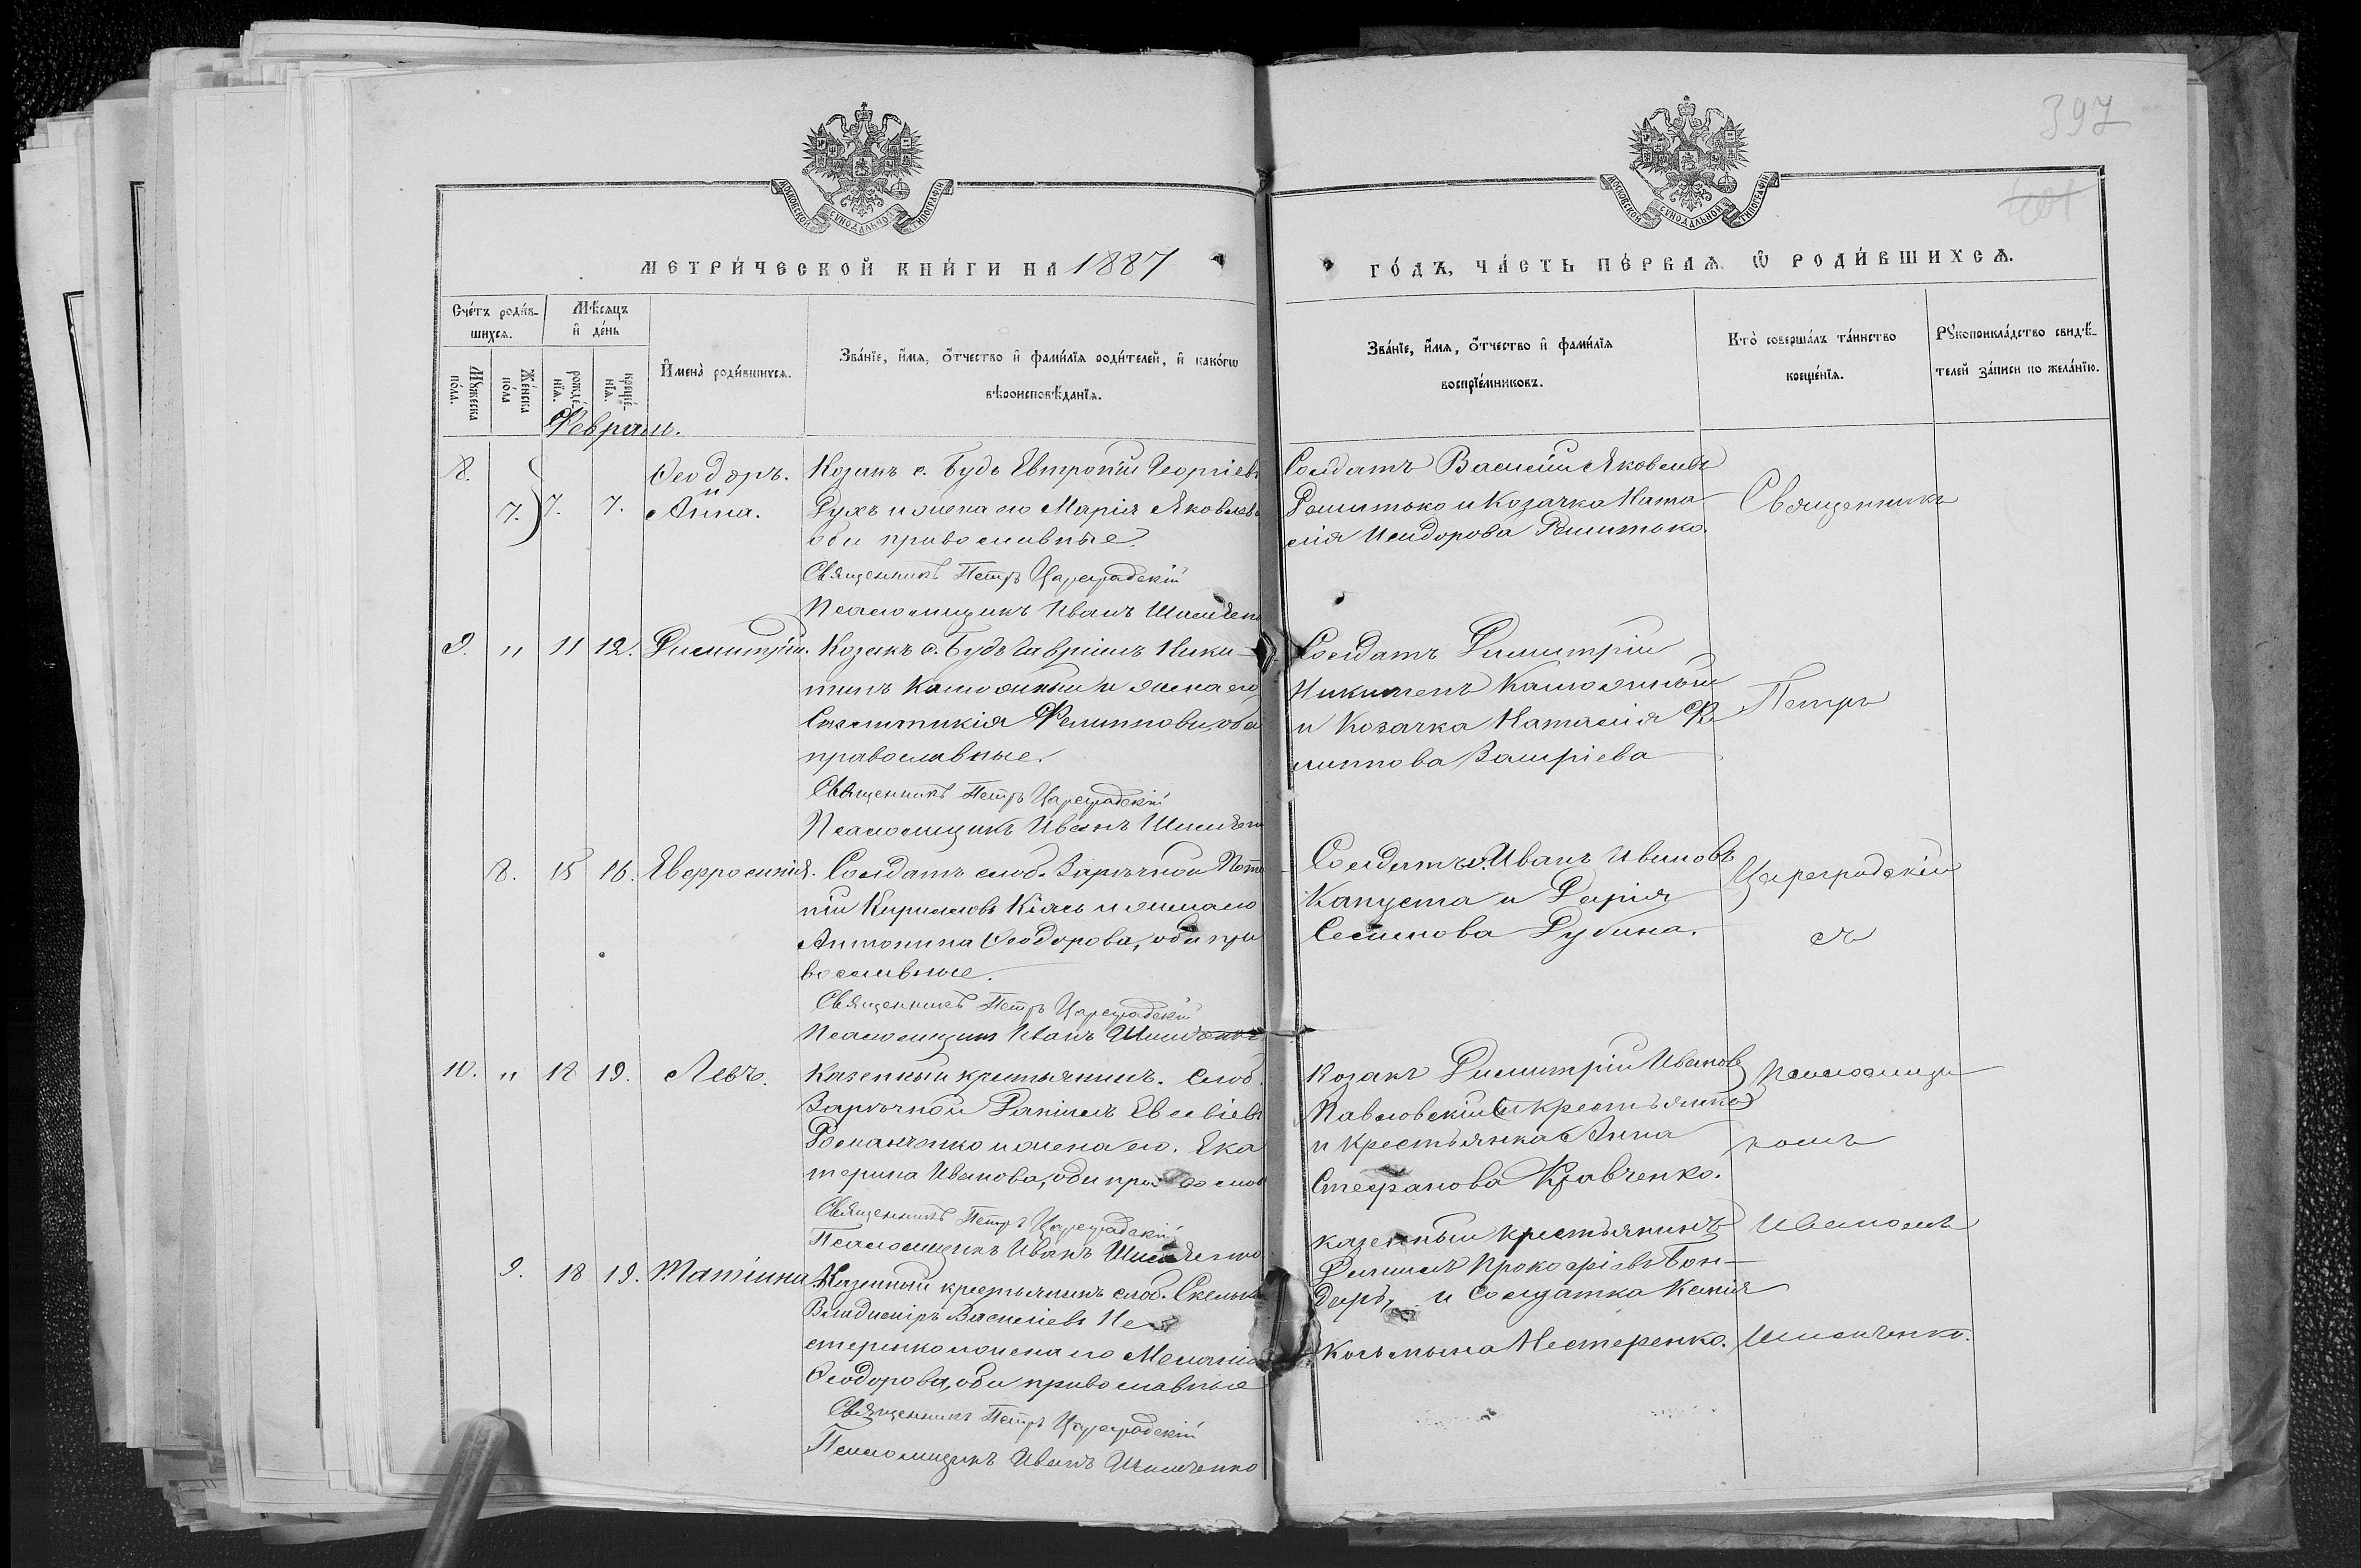 397
МОСКОВСКОЙ СѴНОДАЛЬНОЙ ТИПОГРАФІИ
МОСКОВСКОЙ СѴНОДАЛЬНОЙ ТИПОГРАФІИ
МЕТРИ́ЧЕСКОЙ КНИ́ГИ НА 1887
ГО́ДЪ, ЧА́СТЬ ПЕ́РВАЯ, Ѽ РОДИ́ВШИХСЯ.
Сче́тъ роди́в-
шихся.
Мѣ́сяцъ
и҆ де́нь
Мꙋ́жеска
по́ла.
Же́нска
по́ла
рожде́-
нїя.
креще́-
нїя.
И҆мена̀ роди́вшихся.
Зва́нїе, и҆́мя, ѻ҆́тчество и҆ фами́лїя роди́телей, и҆ како́гѡ
вѣроисповѣ́данїя.
Зва́нїе, и҆́мя, ѻ҆́тчество и҆ фами́лїя
воспрїе́мниковъ.
Кто̀ соверша́лъ та́инство
креще́нїя.
Рꙋкоприкла́дство свидѣ́-
телей за́писи по жела́нїю.
Февраль.
8. 7. 7. 7.
Ѳеодоръ.
и
Анна.
Козакъ с. Будъ Евтропій Георгіевъ
Рухъ и жена его Марія Яковлева
оби православные.
Священникъ Петръ Цареградскій
Псаломщикъ Иванъ
Солдатъ Василій Яковлевъ
и Козачка Ната
лія Исидорова
Священникъ
9. " 11 12. Димитрій.
Козакъ с. Будъ Гавріилъ Ники
тинъ и жена его
Филиппова, оба
православные.
Священникъ Петръ Цареградскій
Псаломщикъ Иванъ
Солдатъ Димитрій
и Козачка Наталія Фи
липпова
Петръ
8. 15 16. Евфросинія.
Солдатъ слоб. Зарѣчной
Кирилловъ и жена его
Антонина Ѳеодорова, оби пра
вославные.
Священникъ Петръ Цареградскій
Псаломщикъ Иванъ
Солдатъ Иванъ Ивановъ
Капуста и Дарія
Семенова
Цареградскій
съ
10. " 18 19. Левъ.
Казенный крестьянинъ. Слоб.
Зарѣчной Даніилъ Евсевіевъ
Романченко и жена его. Ека
терина Иванова, оби
Священникъ Петръ Цареградскій
Псаломщикъ Иванъ
Козакъ Димитрій Ивановъ
Павловскій
и Крестьянка Анна
Стефанова Кравченко.
Псаломщи
комъ
9. 18 19. Татіана
Казенный крестьянинъ слоб.
Владиміръ Василіевъ Не
стеренко и жена его Меланія
Ѳеодорова, оби православные
Священникъ Петръ Цареградскій
Псаломщикъ Иванъ
казенный крестьянинъ
Прокофіевъ Бон-
дарь, и Солдатка Ксенія
Косьмина Нестеренко.
Иваномъ